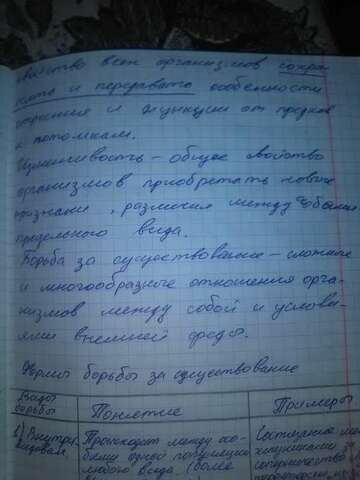 свойство всех организмов сохра-
нять и передавать особенности
строения и функции от предков
к потомкам.
Изменчивость – общее свойство
организмов приобретать новые
признаки, различия между особями
предельного вида.
Борьба за существование – сложные
и многообразные отношения орга-
низмов между собой и услови-
ями внешней среды.
Формы борьбы за существование
Виды борьбы Понятие Примеры
1) Внутри- Происходит между осо-
видовая бями одной популяции
любого вида (более